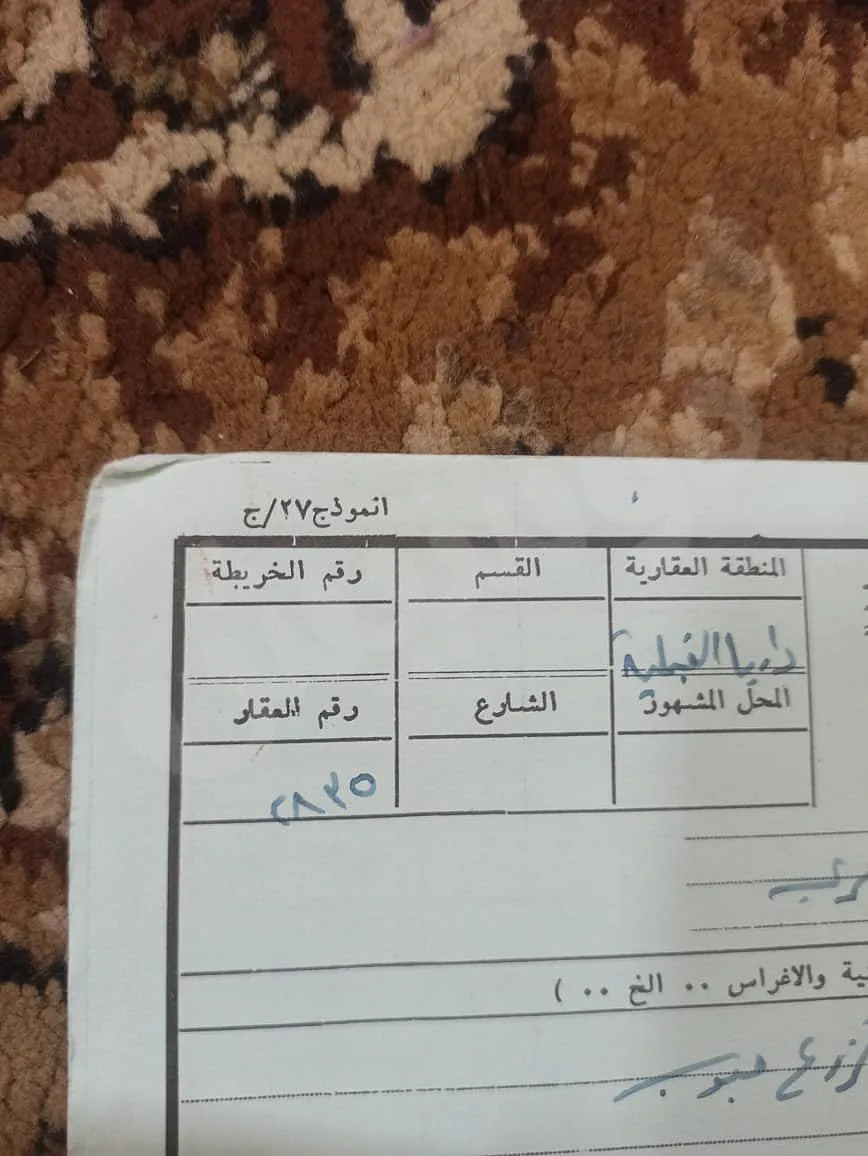 انموذج ٢٧/ج
المنطقة العقارية القسم رقم الخريطة
داريا القبلية
المحل المشهور الشارع رقم العقار
٢٨٣٥
ية والاغراس .. الخ .. )
حبوب